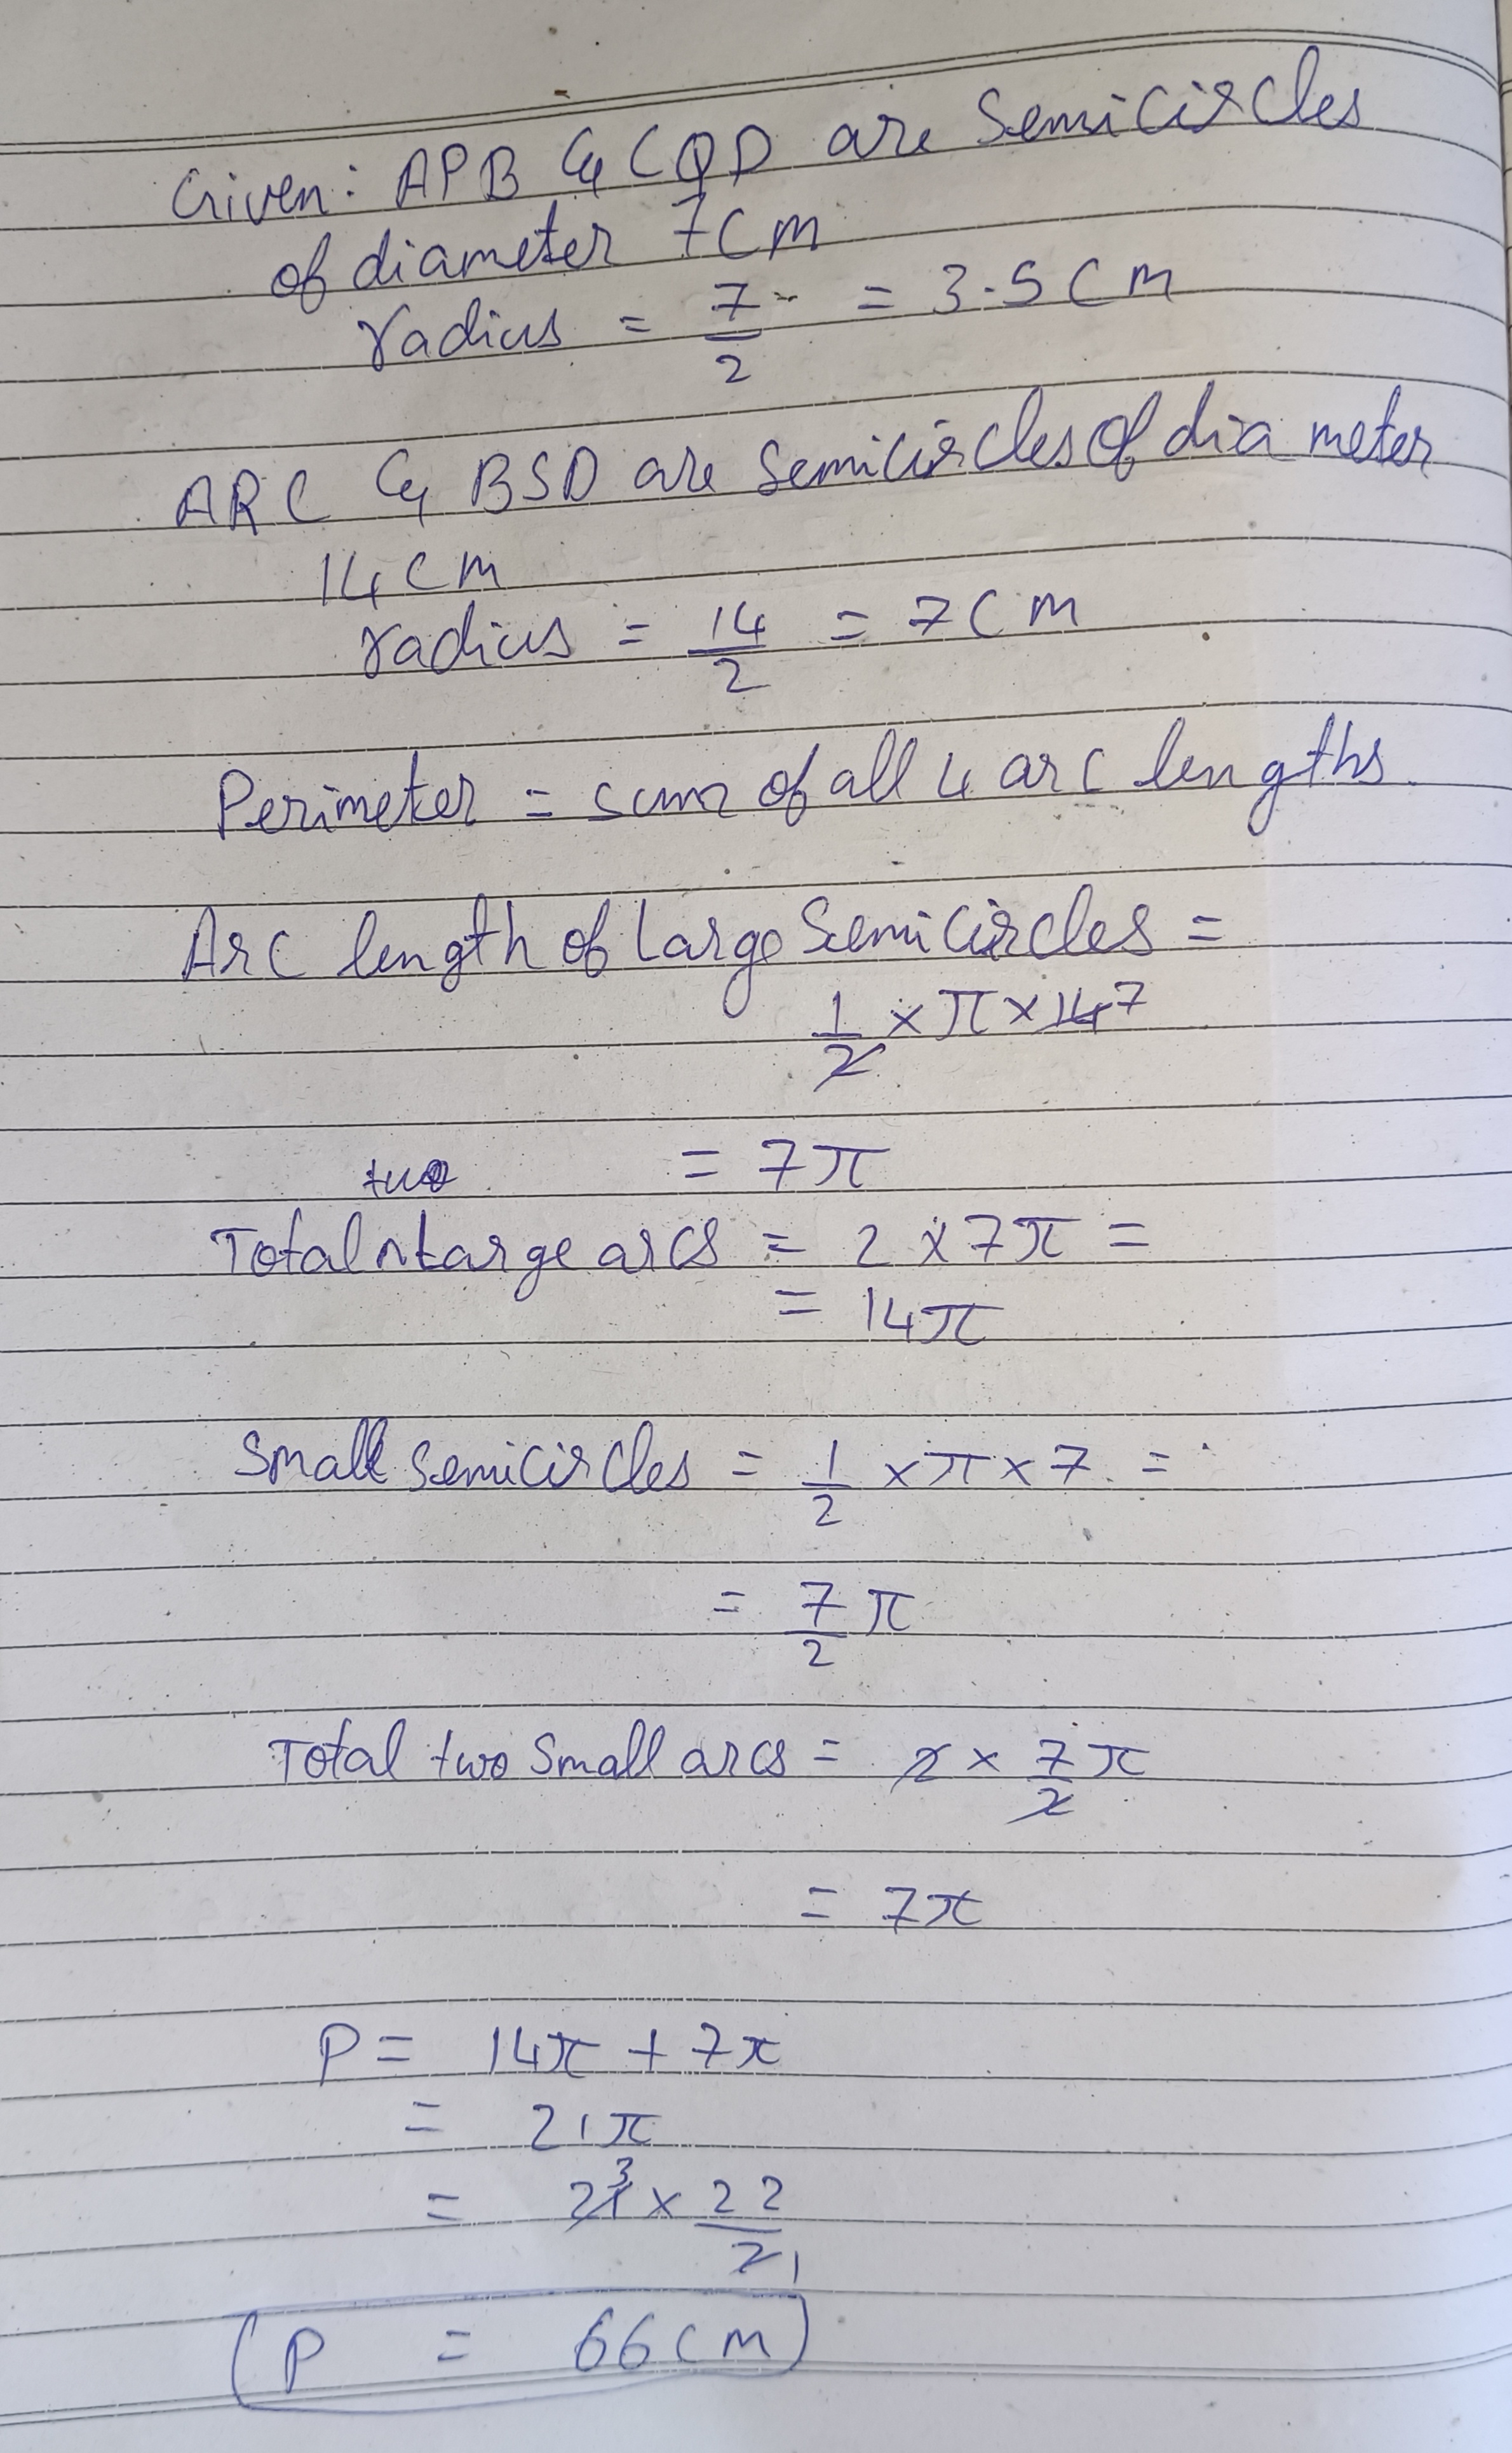 Given: APB & CQD are Semicircles
of diameter 7cm
radius = 7/2 = 3.5 cm
ARC & BSD are Semicircles of diameter
14cm
radius = 14/2 = 7 cm
Perimeter = sum of all 4 arc lengths
Arc length of Large Semicircles =
1/2 × π × 14 7
= 7π
two
Total ∧ Large arcs = 2 × 7π =
= 14π
Small Semicircles = 1/2 × π × 7 =
= 7/2 π
Total two Small arcs = 2 × 7/2 π
= 7π
P = 14π + 7π
= 21π
= 21 3 × 22/7 1
P = 66cm